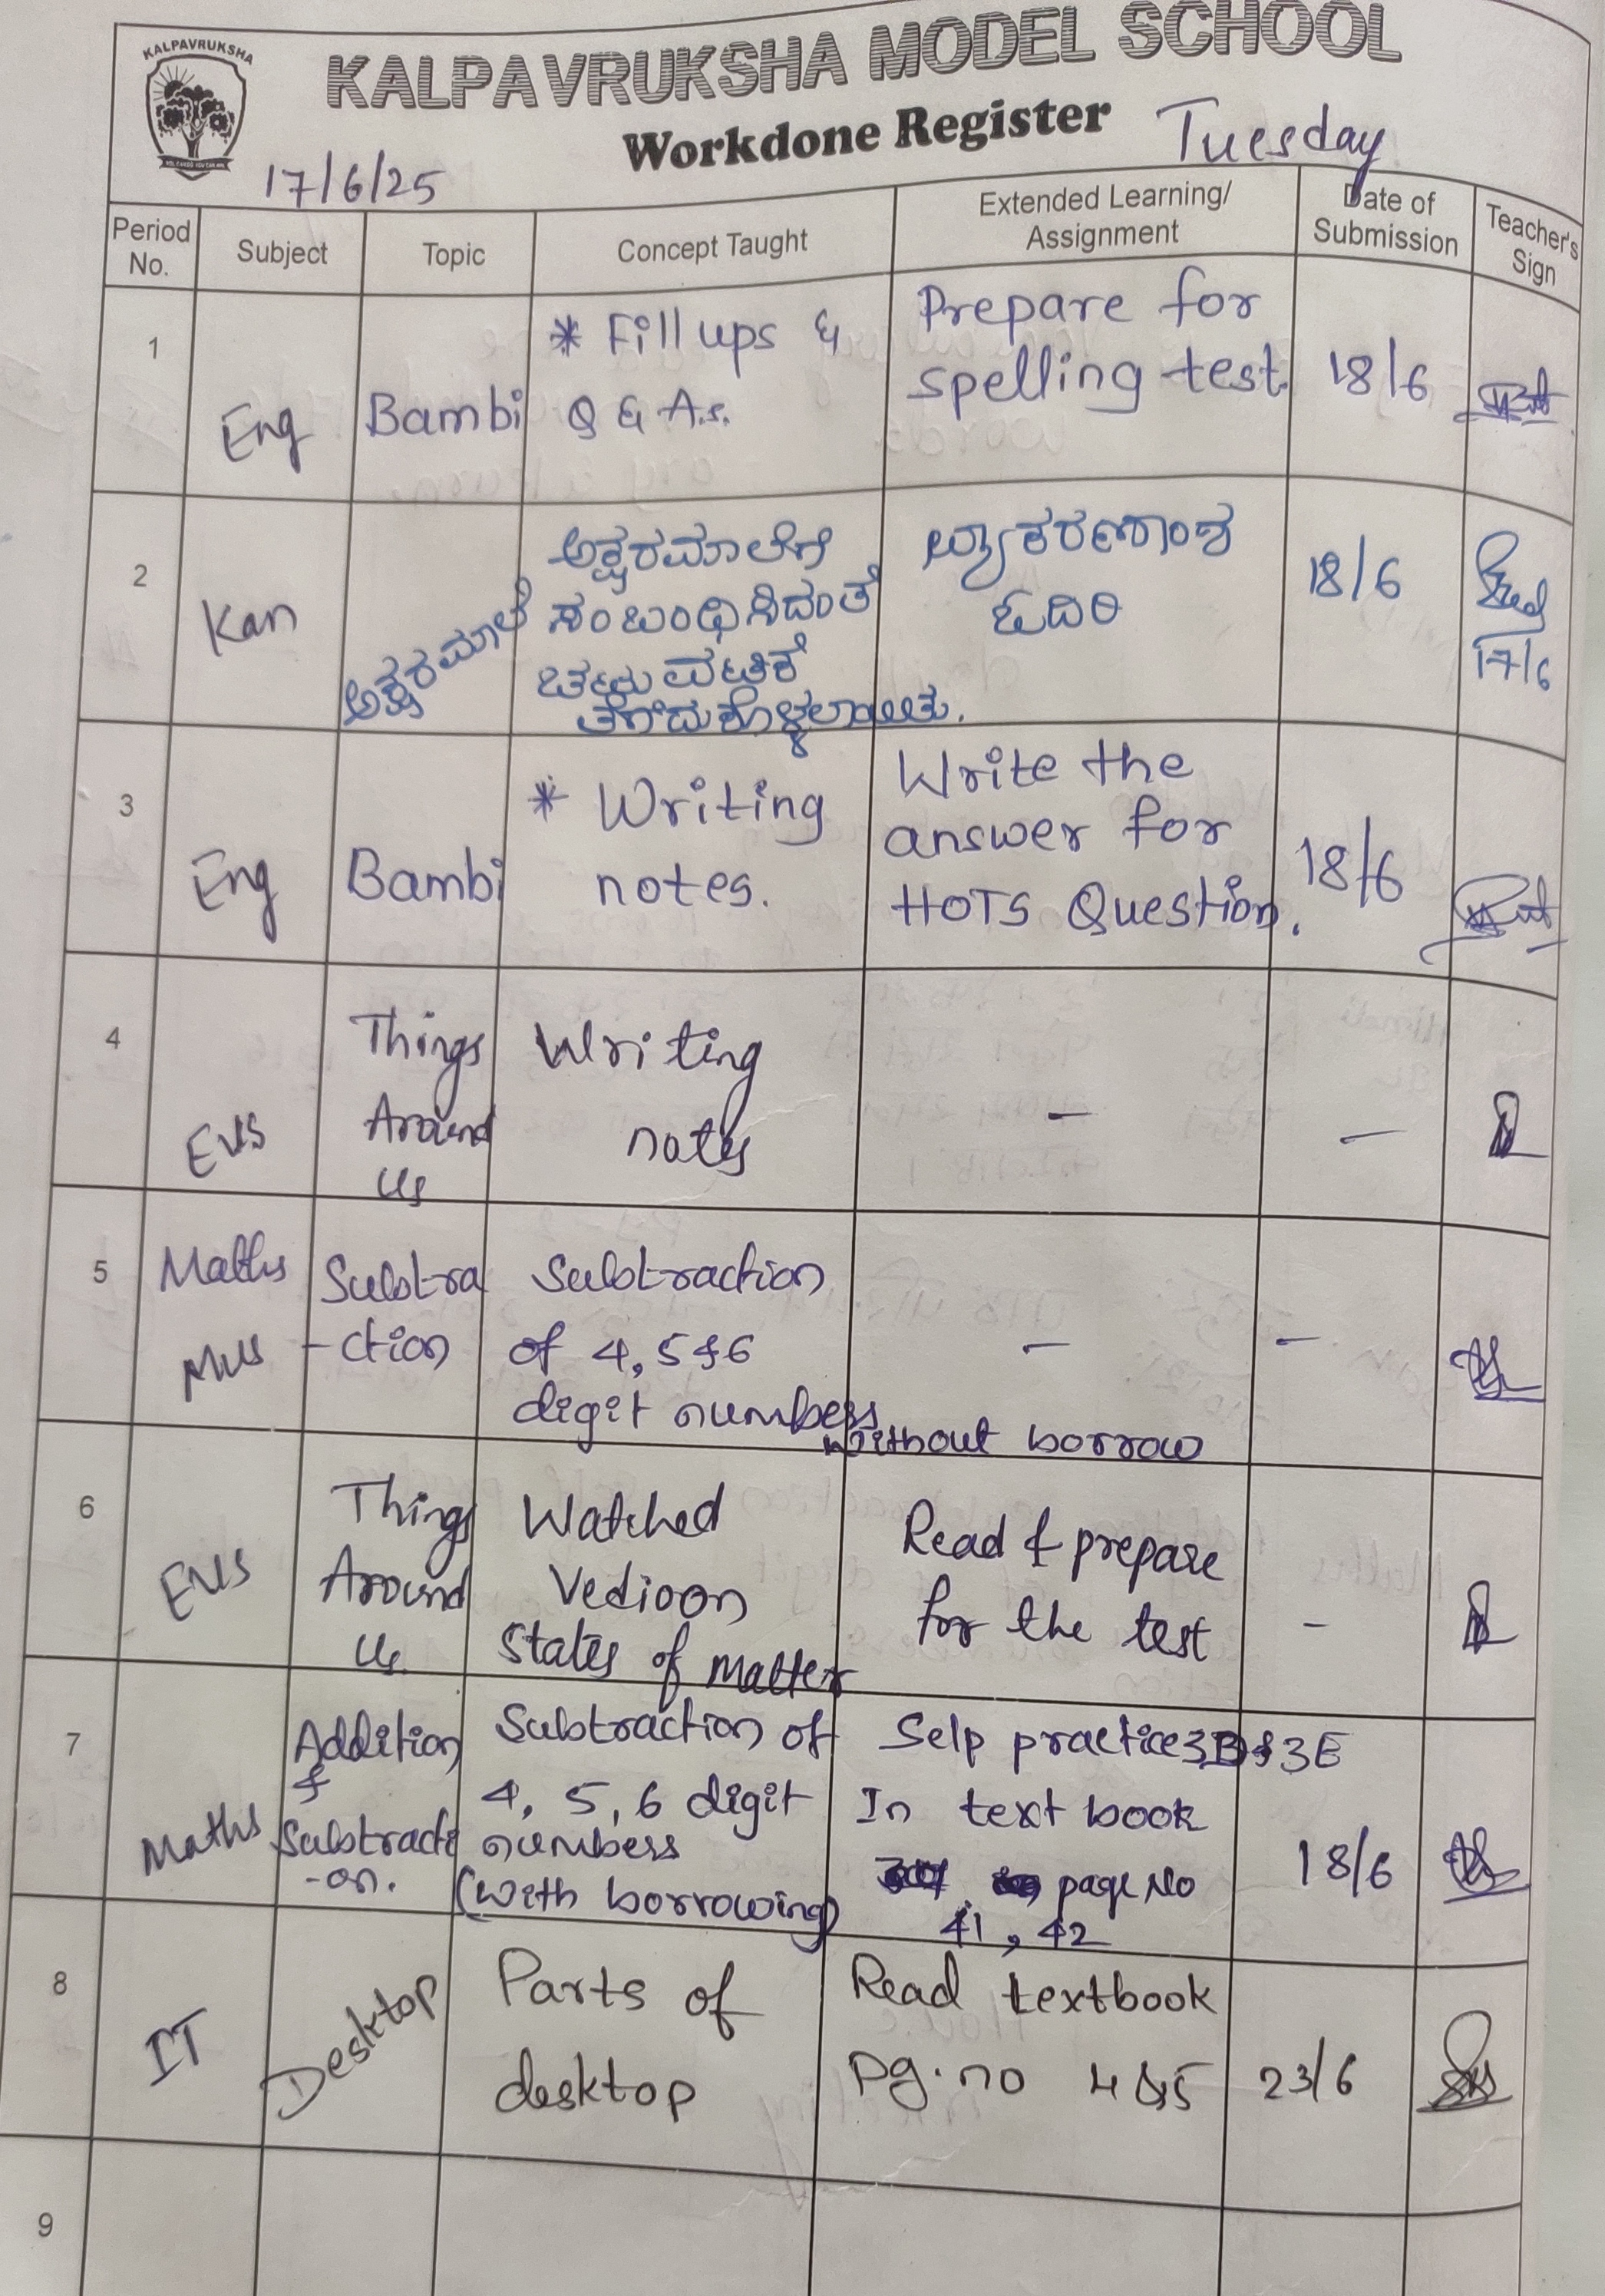 KALPAVRUKSHA
KALPAVRUKSHA MODEL SCHOOL
Workdone Register
Tuesday
17/6/25
Period No.
Subject
Topic
Concept Taught
Extended Learning/
Assignment
Date of
Submission
Teacher's
Sign
1
Eng
Bambi
* Fill ups &
Q & A.s.
Prepare for
spelling test.
18/6
2
Kan
ಅಕ್ಷರಮಾಲೆ
ಅಕ್ಷರಮಾಲೆಗೆ
ಸಂಬಂಧಿಸಿದಂತೆ
ಚಟುವಟಿಕೆ
ತೆಗೆದುಕೊಳ್ಳಲಾಯಿತು.
ವ್ಯಾಕರಣಾಂಶ
ಓದಿರಿ
18/6
17/6
3
Eng
Bambi
* Writing
notes.
Write the
answer for
HOTS Question.
18/6
4
EVS
Things
Around
Us
Writing
notes
-
-
5
Maths
Subtra
-ction
Subtraction
of 4, 5 & 6
digit numbers
without borrow
-
-
6
EVS
Things
Around
Us
Watched
Vedioon
States of matter
Read & prepare
for the test
-
7
Maths
Addition
&
Subtracti
-on.
Subtraction of
4, 5, 6 digit
numbers
(with borrowing)
Selp practice 3D & 3E
In text book
page No
41, 42
18/6
8
IT
Desktop
Parts of
desktop
Read textbook
pg.no 4 & 5
23/6
9